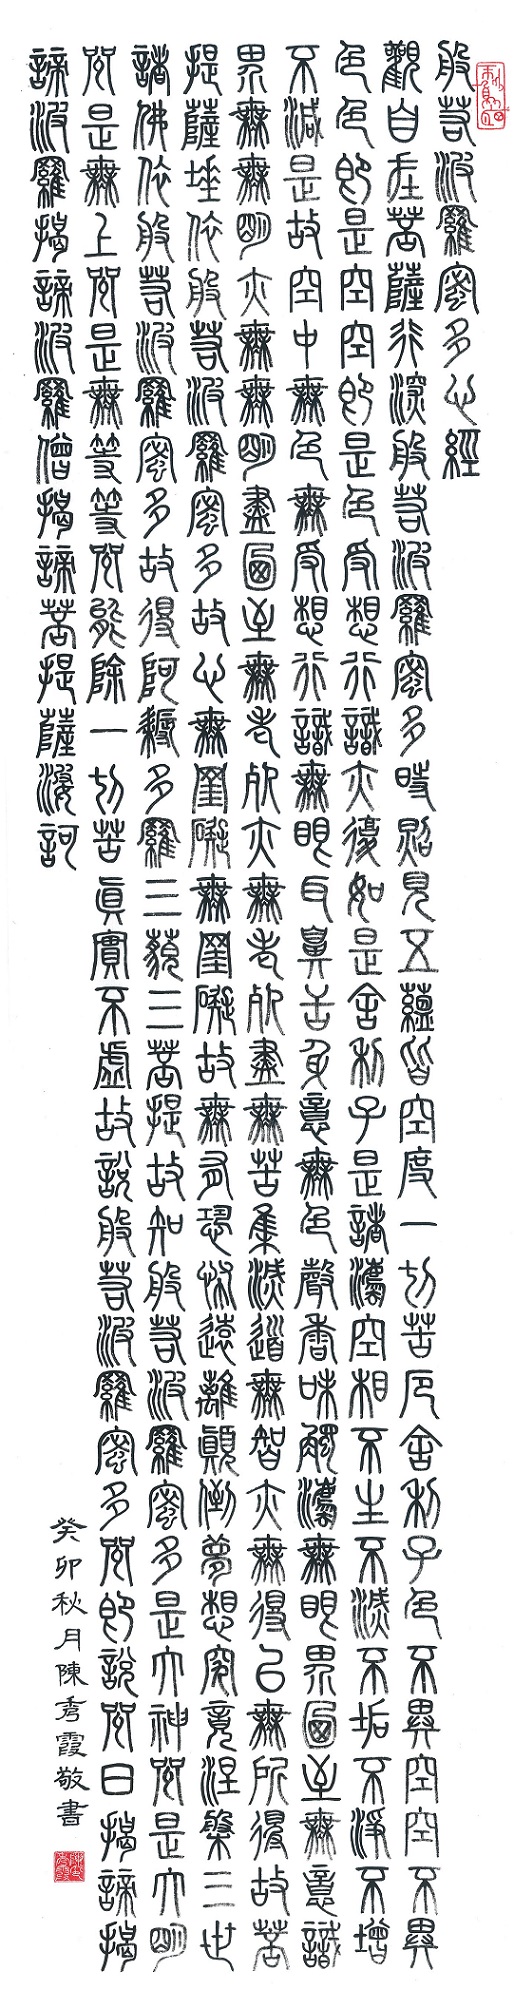 般若波羅蜜多心經
觀自在菩薩行深般若波羅蜜多時照見五蘊皆空度一切苦厄舍利子色不異空空不異
色色即是空空即是色受想行識亦復如是舍利子是諸法空相不生不滅不垢不淨不增
不減是故空中無色無受想行識無眼耳鼻舌身意無色聲香味觸法無眼界乃至無意識
界無無明亦無無明盡乃至無老死亦無老死盡無苦集滅道無智亦無得以無所得故菩
提薩埵依般若波羅蜜多故心無罣礙無罣礙故無有恐怖遠離顛倒夢想究竟涅槃三世
諸佛依般若波羅蜜多故得阿耨多羅三藐三菩提故知般若波羅蜜多是大神咒是大明
咒是無上咒是無等等咒能除一切苦真實不虛故說般若波羅蜜多咒即說咒曰揭諦揭
諦波羅揭諦波羅僧揭諦菩提薩婆訶
癸卯秋月陳秀霞敬書